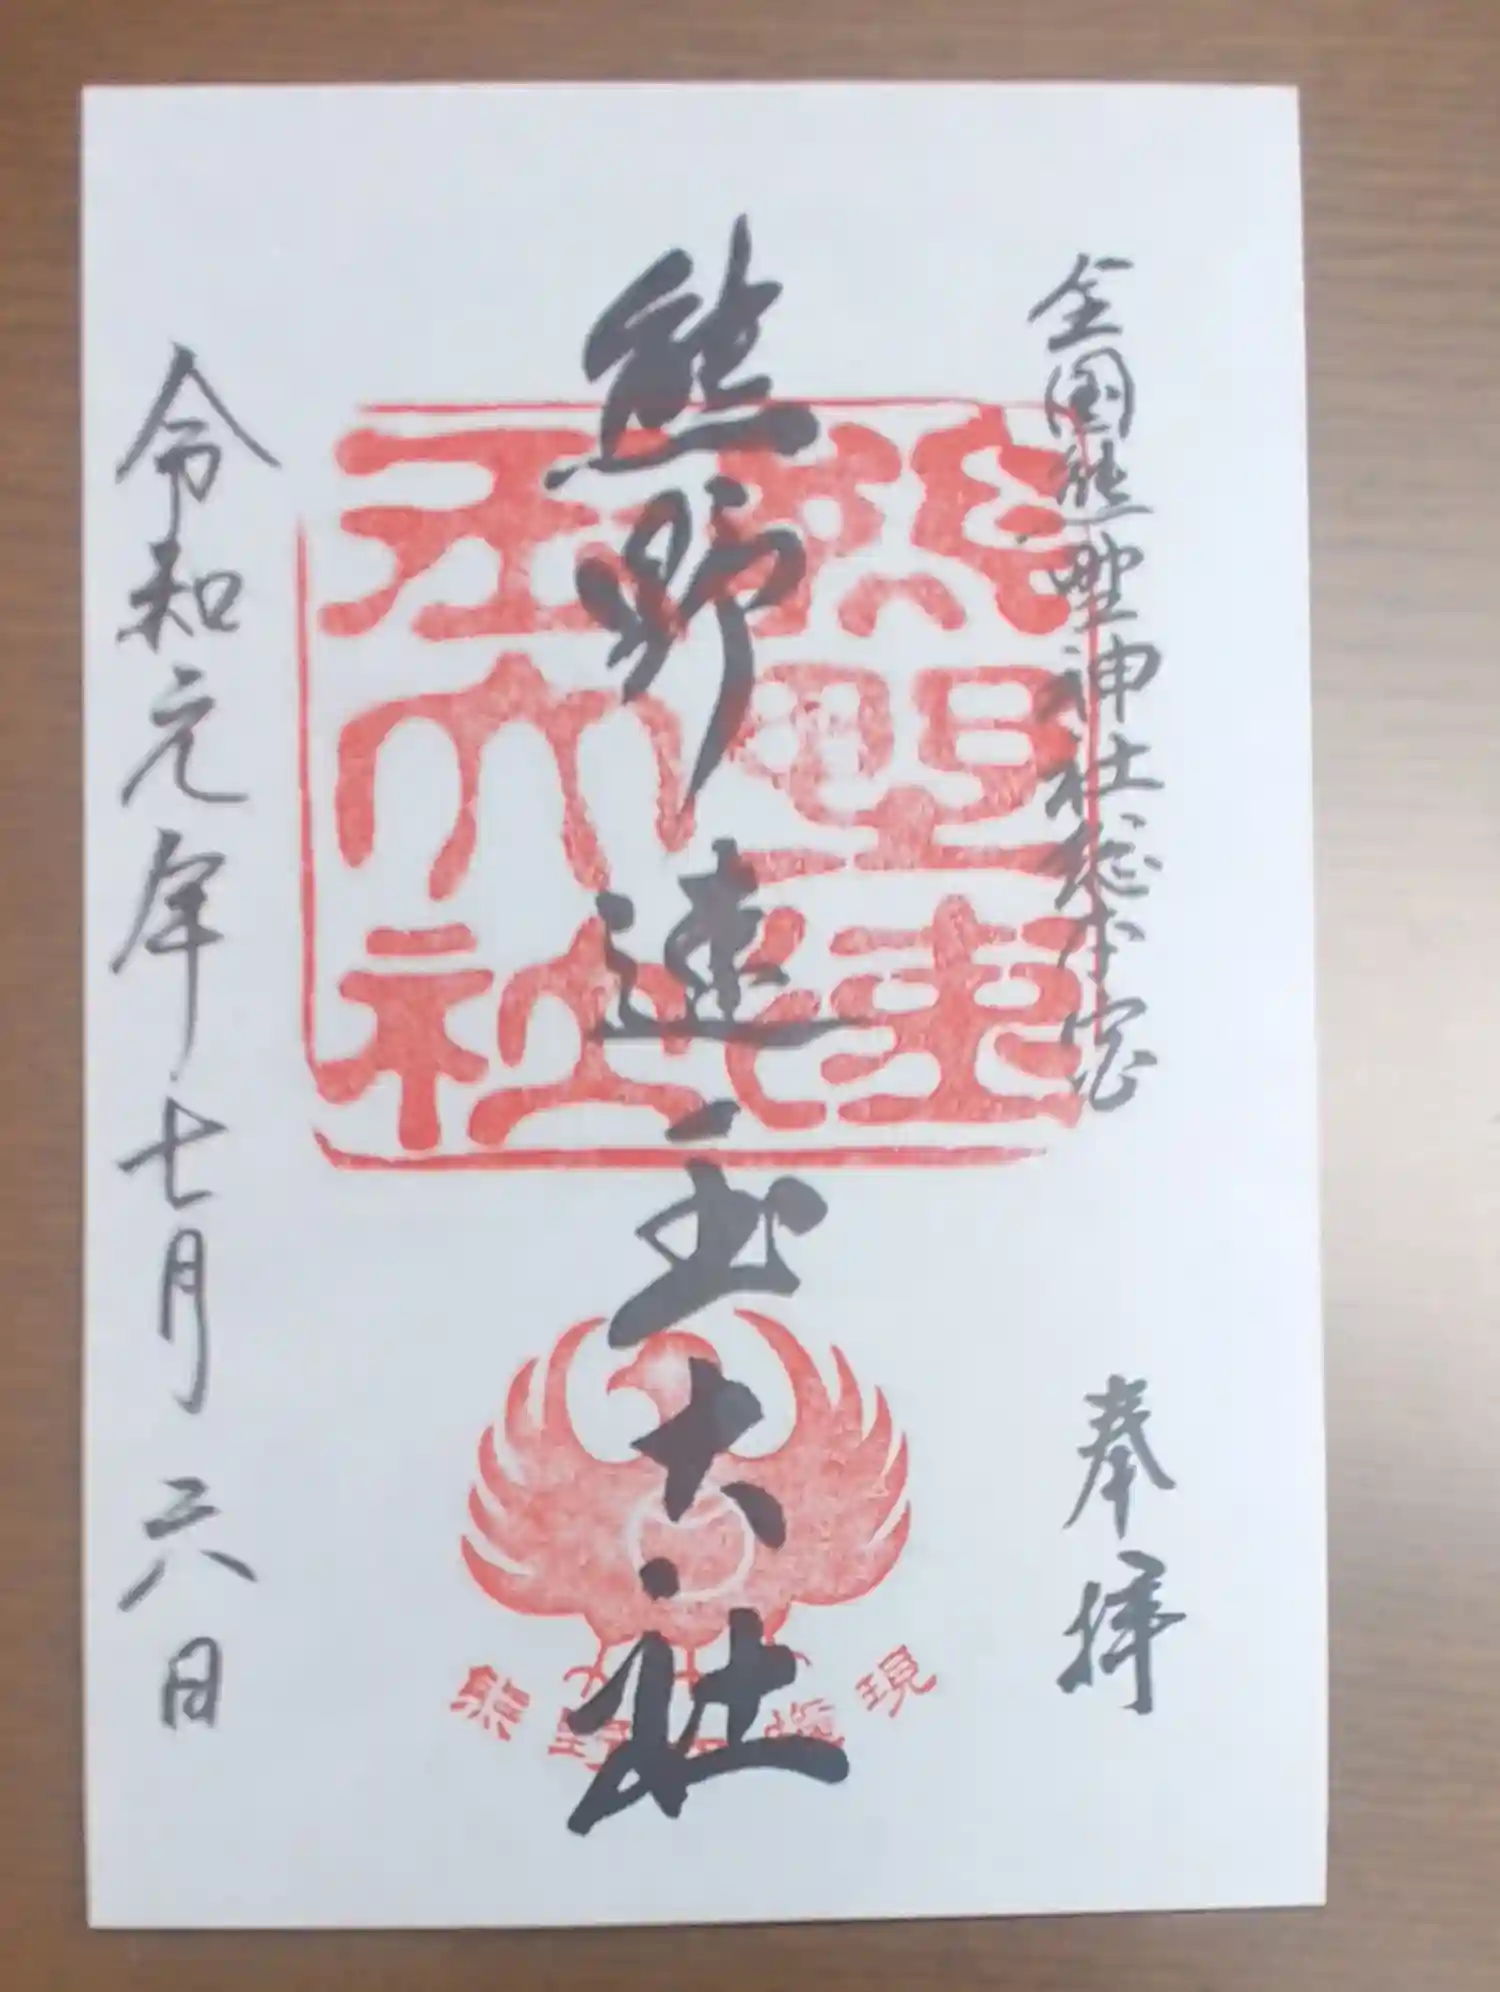 全国熊野神社総本宮
奉拝
熊野速玉大社
熊野速玉大社
令和元年七月六日
熊野 権現